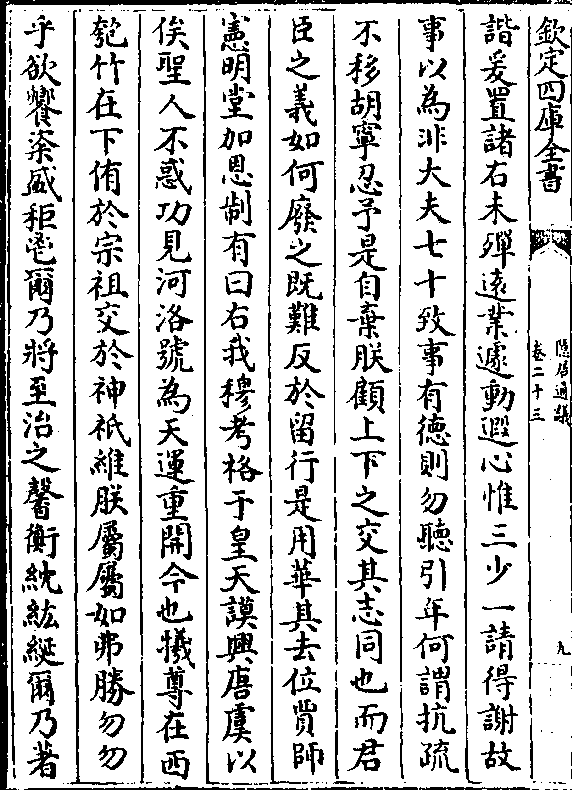 欽定四庫全書
隱居通議
卷二十三
九
諧爰置諸右未殫遠業遽動遐心惟三少一請得謝故
事以為非大夫七十致事有德則勿聽引年何謂抗疏
不移胡寧忍予是自棄朕顧上下之交其志同也而君
臣之義如何廢之既難反於留行是用華其去位賁師
憲明堂加恩制有曰右我穆考格于皇天謨興唐虞以
俟聖人不惑功見河洛號為天運重開今也犧尊在西
匏竹在下侑於宗祖交於神祇維朕屬屬如弗勝勿勿
乎欲饗粢盛秬鬯爾乃將至治之馨衡紞紘綖爾乃著